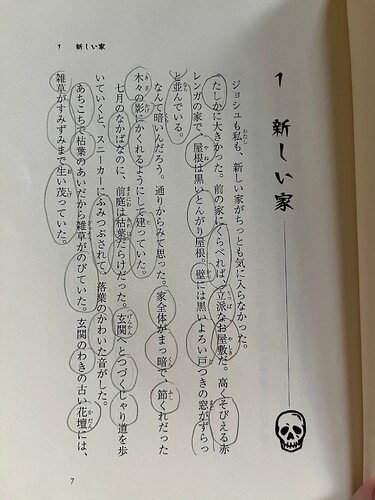 1 新しい家
1 新しい家
ジョシュも私も、新しい家がちっとも気に入らなかった。
たしかに大きかった。前の家にくらべれば、立派なお屋敷だ。高くそびえる赤
レンガの家で、屋根は黒いとんがり屋根。壁には黒いよろい戸つきの窓がずらっ
と並んでいる。
なんて暗いんだろう。通りからみて思った。家全体がまっ暗で、節くれだった
木々の影にかくれるようにして建っていた。
七月のなかばなのに、前庭は枯葉だらけだった。玄関へとつづくじゃり道を歩
いていくと、スニーカーにふみつぶされて、落葉のかわいた音がした。
あちこちで枯葉のあいだから雑草がのびていた。玄関のわきの古い花壇には、
雑草がすみずみまで生い茂っていた。
7